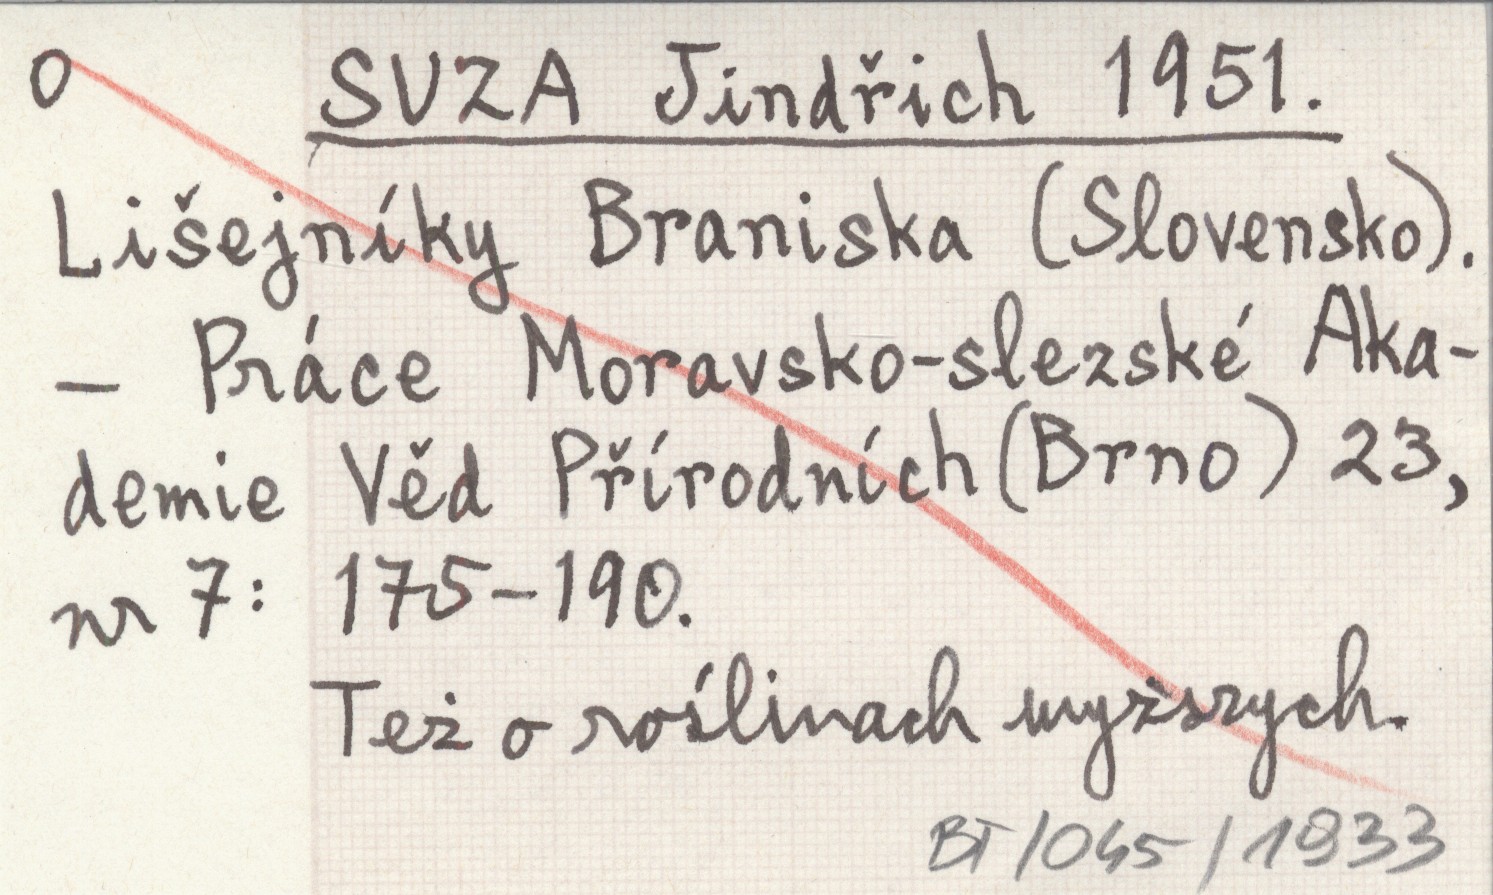 O SUZA Jindřich 1951.
Lišejníky Braniska (Slovensko).
— Práce Moravsko-slezské Aka-
demie Věd Přírodních (Brno) 23,
nr 7: 175-190.
Też o roślinach wyższych.
BT/045/1933